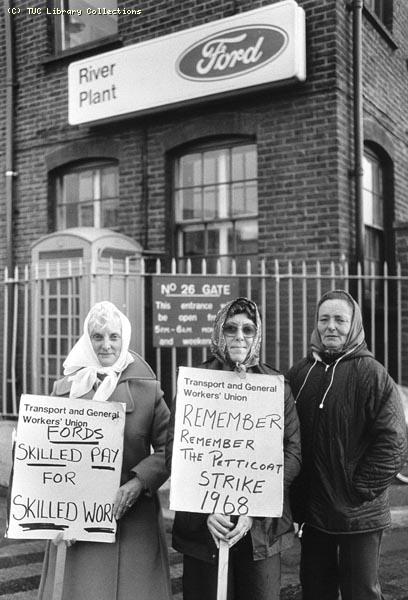 (C) TUC Library Collections
River
Plant
Ford
No 26 GATE
This entrance
be open fr
5am-6am mo
and weeken
Transport and General
Workers' Union
FORDS
SKILLED PAY
FOR
SKILLED WORK
Transport and General
Workers' Union
REMEMBER
REMEMBER
THE PETTICOAT
STRIKE
1968